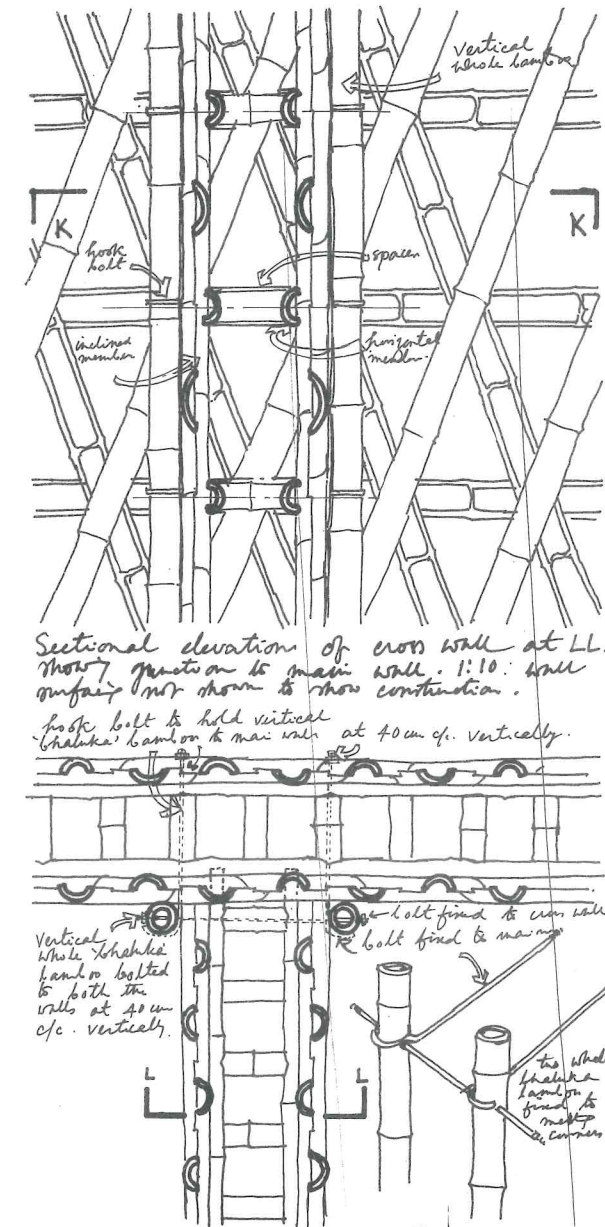 vertical
whole bamboo
K
K
hook
bolt
spacer
inclined
member
horizontal
member.
Sectional elevations of cross wall at LL.
showg junction to main wall. 1:10: wall
surfacing not shown to show construction.
hook bolt to hold vertical
'bhaluka' bamboo to main walls at 40 cm c/c. vertically.
bolt fixed to cross wall
bolt fixed to main
vertical
whole 'bhaluka'
bamboo bolted
to both the
walls at 40 cm
c/c. vertically.
L
L
two whole
bhaluka
bamboo
fixed to
corners